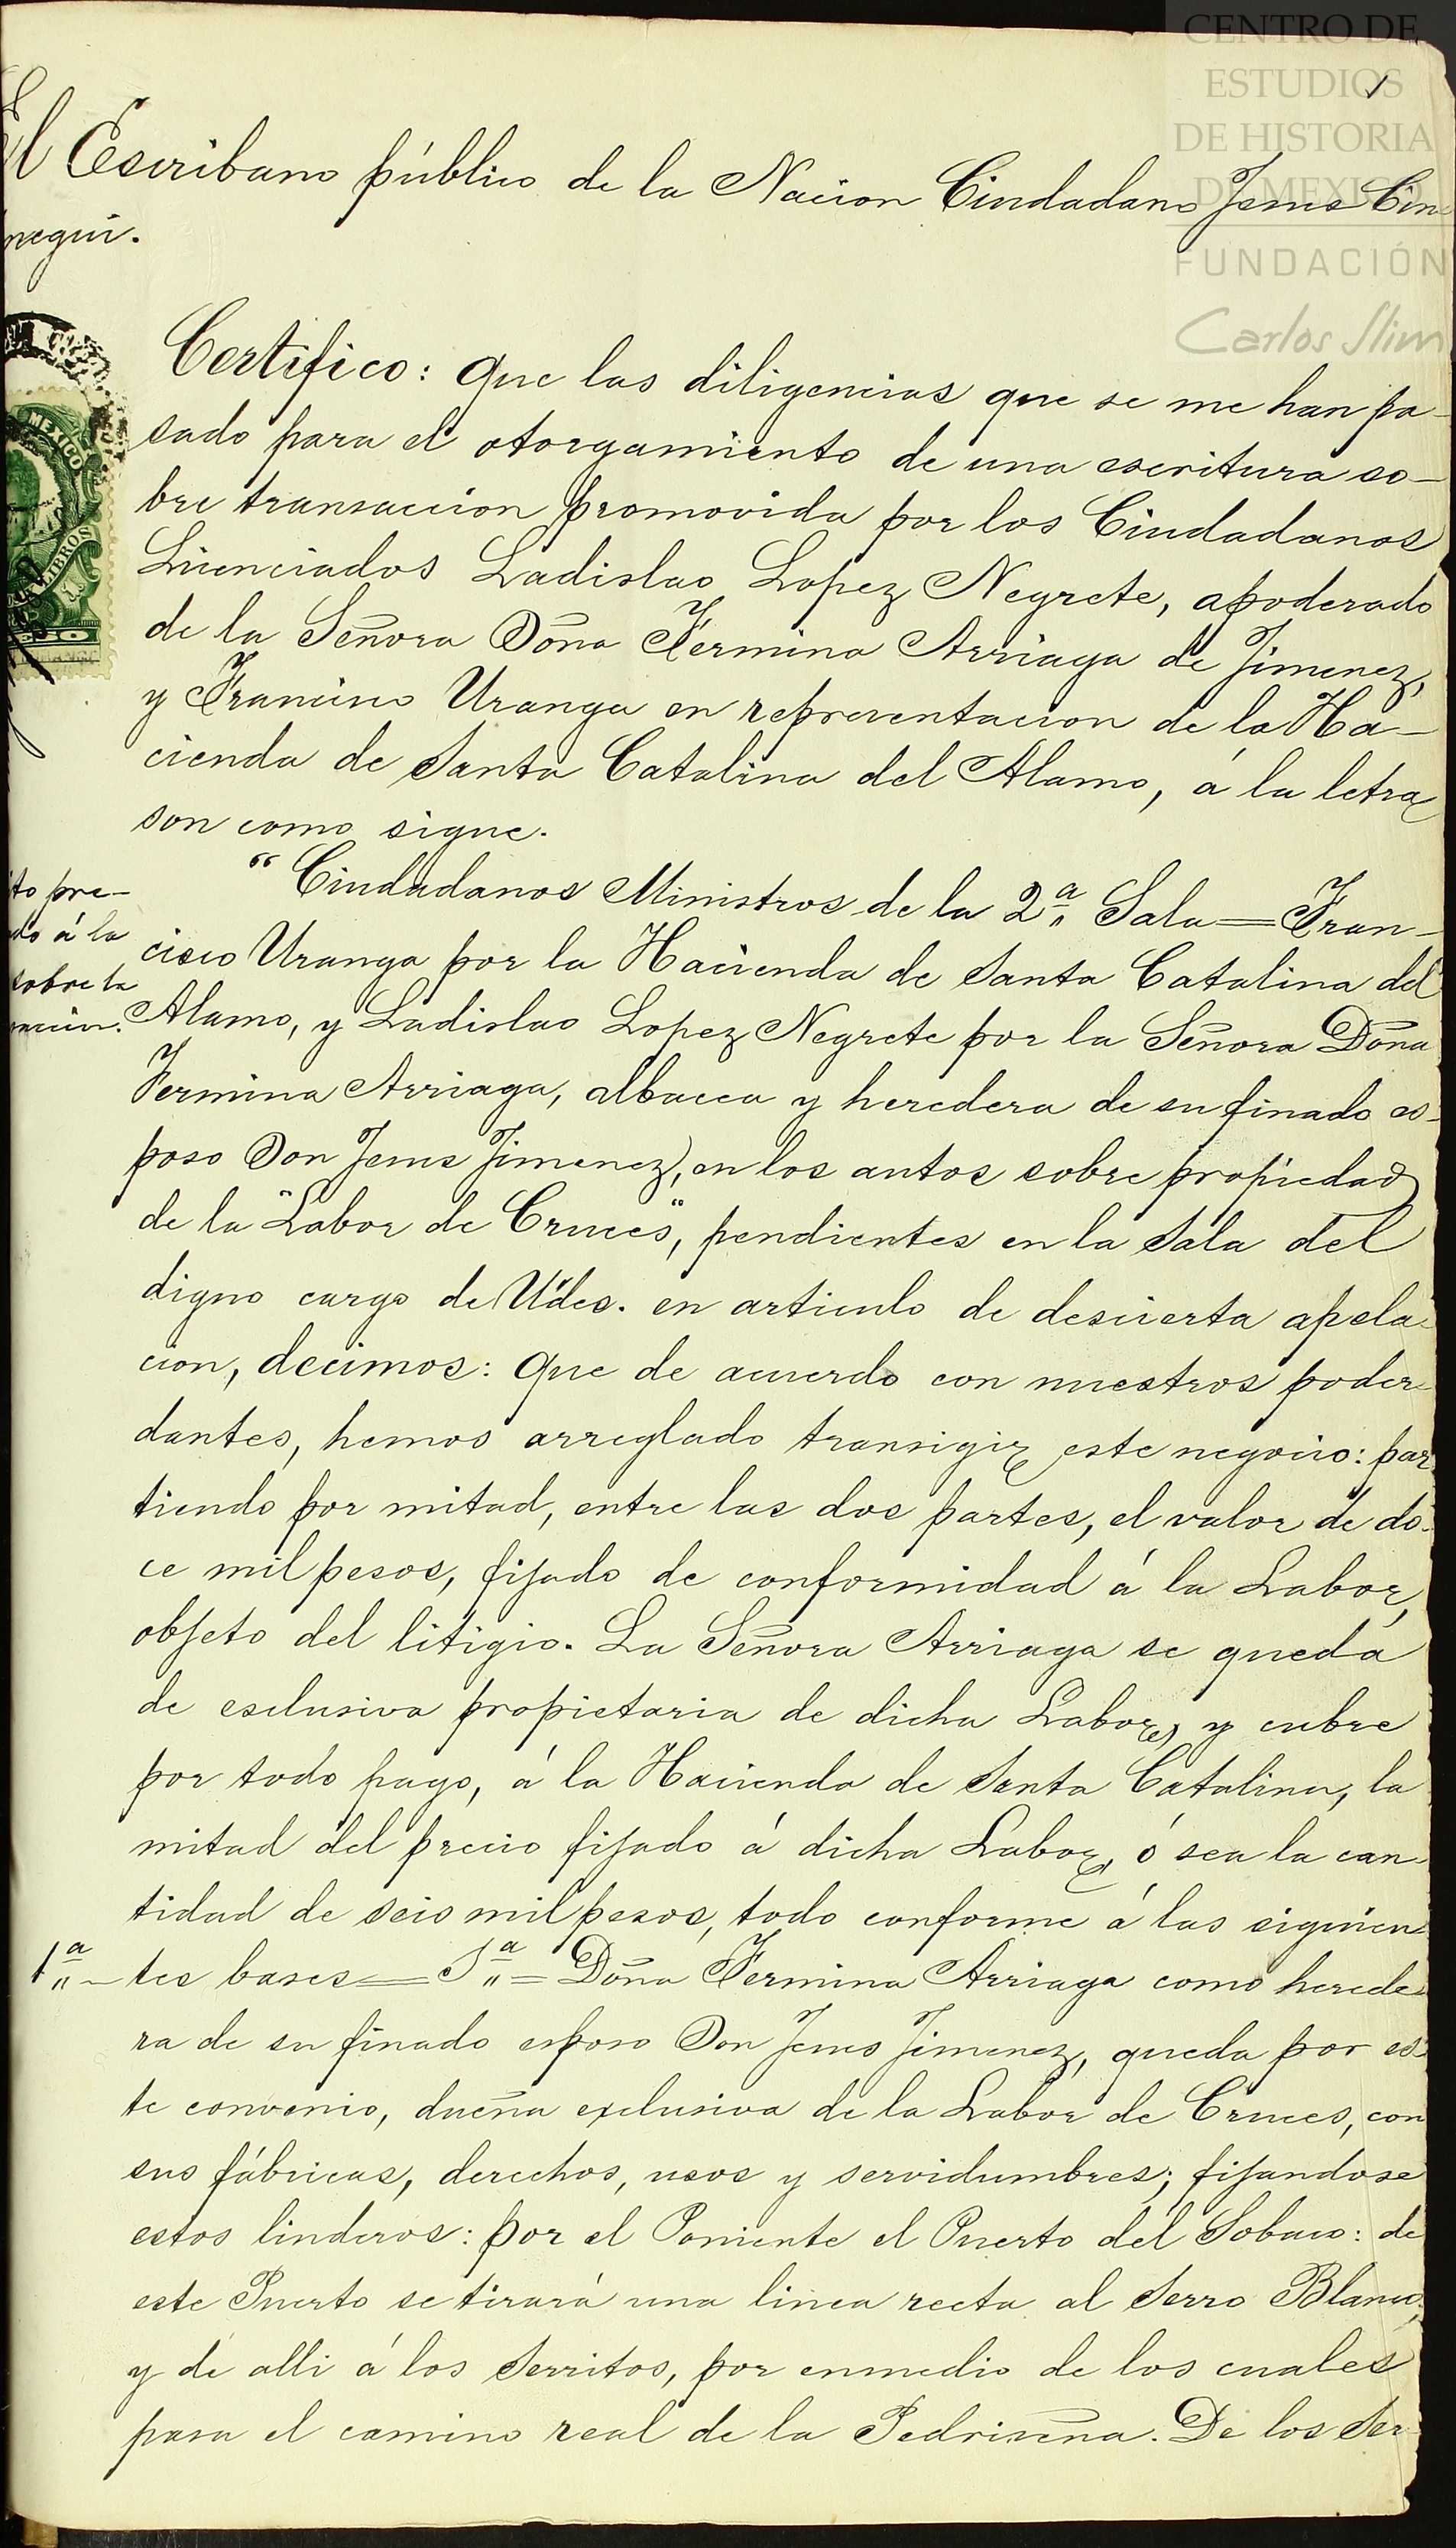 CENTRO DE
ESTUDIOS
DE HISTORIA
DE MEXICO
FUNDACIÓN
Carlos Slim
El Escribano público de la Nacion Ciudadano Jesus Cin
negui.
Certifico: que las diligencias que se me han pa-
sado para el otorgamiento de una escritura so-
bre transaccion promovida por los Ciudadanos
Licenciados Ladislao Lopez Negrete, apoderado
de la Señora Doña Fermina Arriaga de Jimenez,
y Francisco Uranga en representacion de la Ha-
cienda de Santa Catalina del Alamo, á la letra
son como sigue.
MEXICO
LIBROS
"Ciudadanos Ministros de la 2ª Sala=Fran-
cisco Uranga por la Hacienda de Santa Catalina del
Alamo, y Ladislao Lopez Negrete por la Señora Doña
Fermina Arriaga, albacea y heredera de su finado es-
poso Don Jesus Jimenez, en los autos sobre propiedad
de la "Labor de Cruces", pendientes en la Sala del
digno cargo de Udes. en articulo de desierta apela-
cion, decimos: que de acuerdo con nuestros poder-
dantes, hemos arreglado transigir este negocio: par-
tiendo por mitad, entre las dos partes, el valor de do-
ce mil pesos, fijado de conformidad á la Labor,
objeto del litigio. La Señora Arriaga se queda
de esclusiva propietaria de dicha Labor, y cubre
por todo pago, á la Hacienda de Santa Catalina, la
mitad del precio fijado á dicha Labor, ó sea la can-
tidad de seis mil pesos, todo conforme á las siguien-
tes bases=1ª=Doña Fermina Arriaga como herede-
ra de su finado esposo Don Jesus Jimenez, queda por es-
te convenio, dueña exclusiva de la Labor de Cruces, con
sus fábricas, derechos, usos y servidumbres; fijandose
estos linderos: por el Poniente el Puerto del Sobaco: de
este Puerto se tirará una linea recta al Serro Blanco,
y de alli á los Serritos, por enmedio de los cuales
pasa el camino real de la Pedriseña. De los Ser-
to pre-
do á la
sobre la
1ª